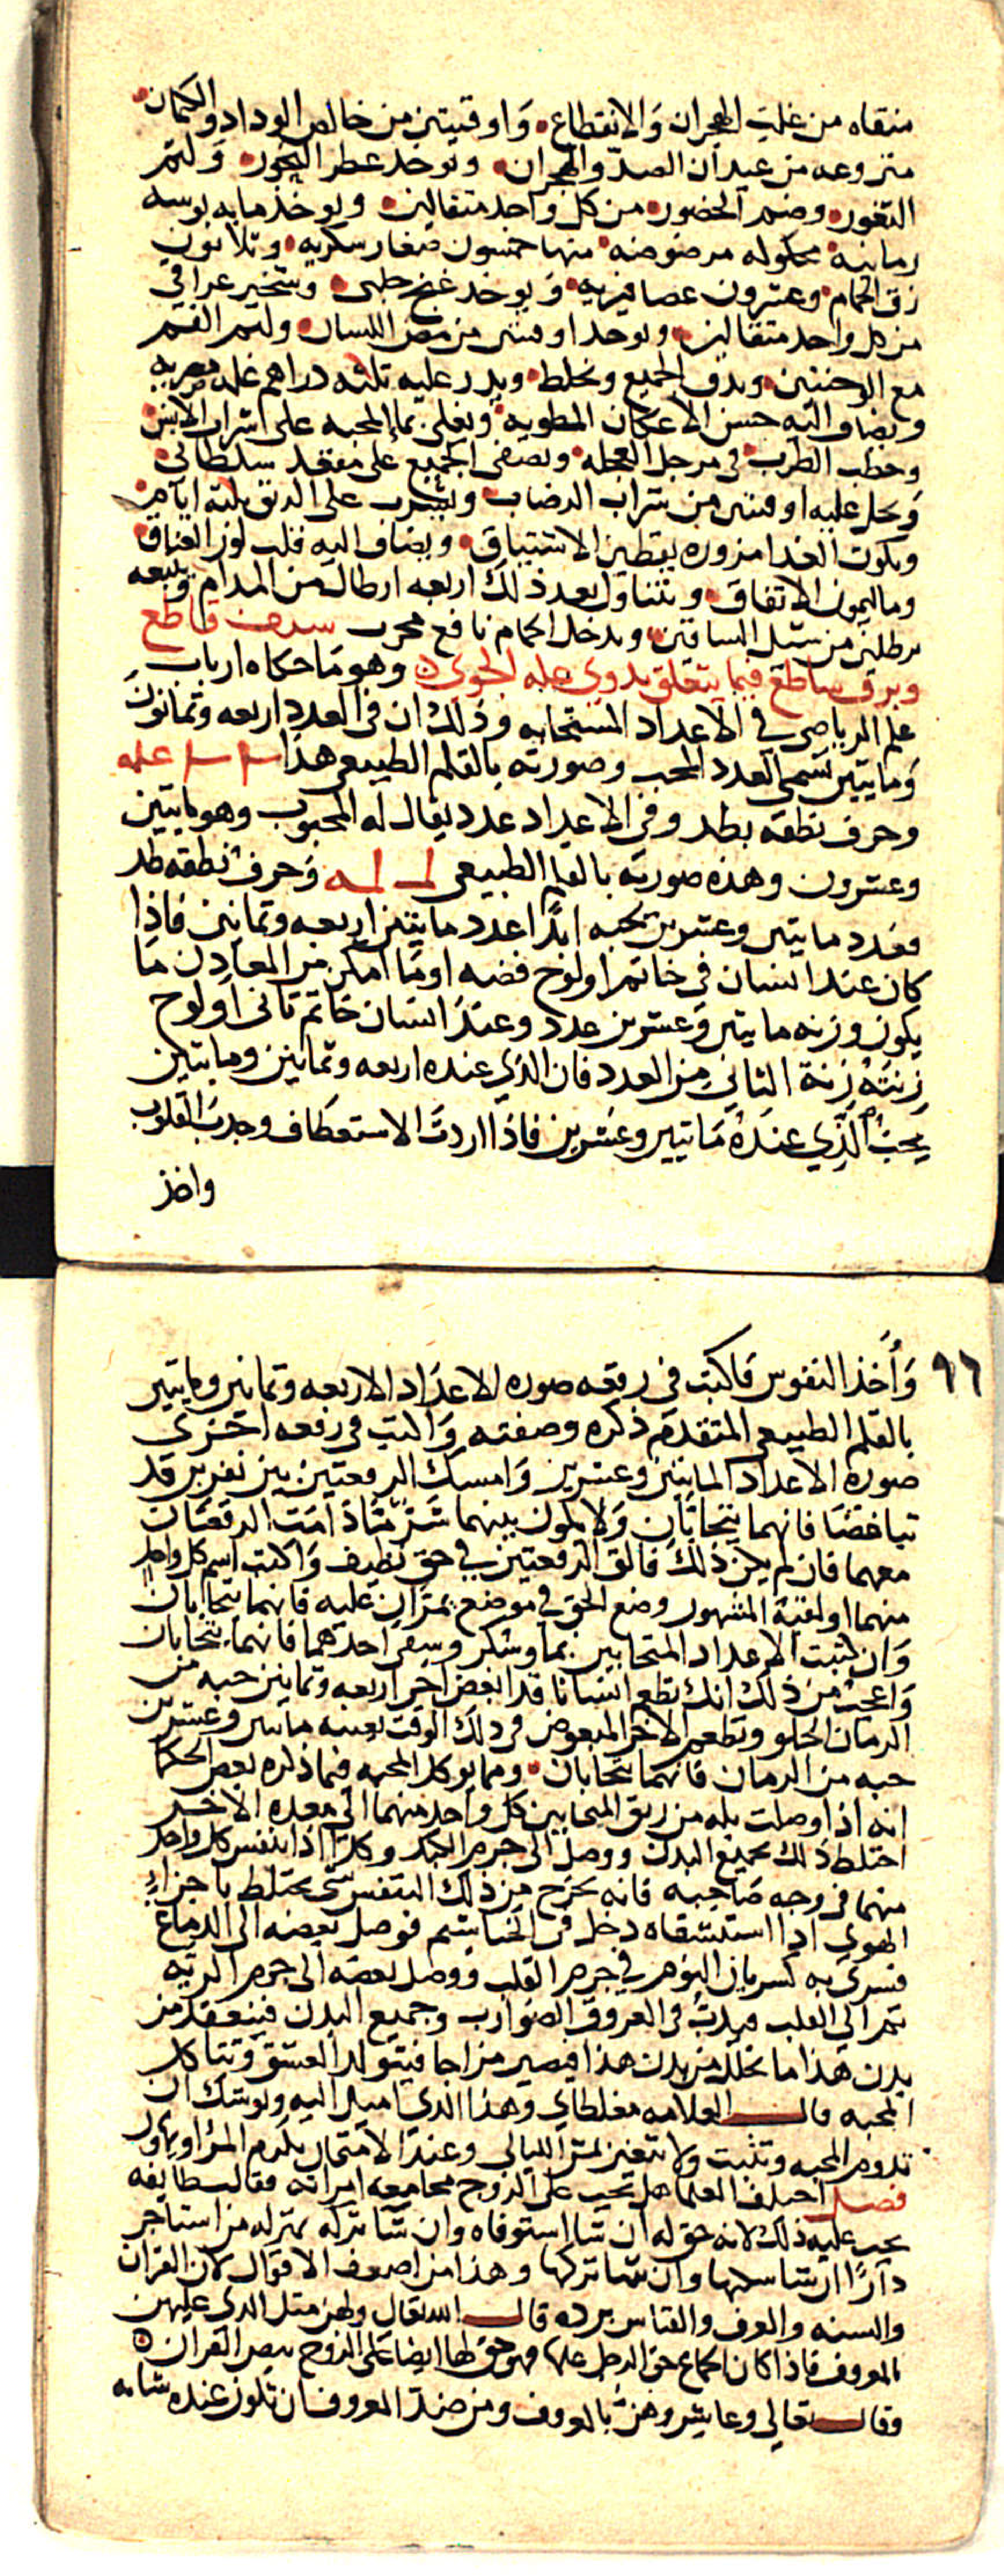 منقاه من غلت الهجران والانقطاع واوقيتين من خالص الوداد والكتمان
منزوعه من عيدان الصد والهجران ويوخد عطر البخور ولثم
الثغور وضم الخصور من كل واحد مثقالين ويوخذ مايه بوسه
رمانيه محكوله مرضوضه منها خمسون صغار سكريه وثلاثون
زق الحمام وعشرون عصافيريه ويوخد غنج حلبى وشخير عراقى
من كل واحد مثقالين ويوحد اوقيتين من مص اللسان ولثم الفم
مع الوجنتين ويدق الجميع ويخلط ويدر عليه ثلثه دراهم غلمه مصريه
ويضاف اليه حسن الاعكان المطويه ويغلى بماء المحبه على شراب الانين
وحطب الطرب فى مرجل العجله ويصفى الجميع على مقعد سلطانى
ويحل عليه اوقيتين من شراب الرضاب ويشرب على الريق ثلثه ايام
ويكون الغدا مزوره بيقطين الاشتياق ويضاف اليه قلب لوز العناق
وماليمون الاتفاق ويتناول بعد ذلك اربعه ارطال من المدام ويتبعه
برطلين من شيل الساقين ويدخل الحمام نافع مجرب سيف قاطع
وبرق ساطع فيما يتعلق بدوى عله الجوى وهو ما حكاه ارباب
علم الرياضى في الاعداد المتحابه وذلك ان فى العدد اربعه وثمانون
ومايتين تسمى العدد المحب وصورته بالقلم الطبيعى هذا
وحرف نطقه بطد وفى الاعداد عدد يقال له المحبوب وهو مايتين
وعشرون وهذه صورته بالقلم الطبيعى وحرف نطقه طد
فعدد مايتين وعشرين يحبه ابدا عدد مايتين اربعه وثمانين فاذا
كان عند انسان فى خاتم او لوح فضه او ما امكن من المعادن ما
يكون وزنه مايتين وعشرين عدد وعند انسان خاتم ثانى او لوح
زنته زنة الثانى من العدد فان الذى عنده اربعه وثمانين ومايتين
يحب الذي عنده مايتين وعشرين فاذا اردت الاستعطاف وجدب القلوب
واخذ
٩٦
وأخذ النفوس فاكتب فى رقعه صوره الاعداد الاربعه وثمانين ومايتين
بالقلم الطبيعى المتقدم ذكره وصفته واكتب فى رقعه اخرى
صورة الاعداد المايتين وعشرين وامسك الرقعتين بين نفرين قد
تباغضا فانهما يتحابان ولا يكون بينهما شر متا دامت الرقعتان
معهما فان لم يكن ذلك فالق الرقعتين فى حق نظيف واكتب اسم كل واحد
منهما او لقبه المشهور وضع الحق فى موضع يمران عليه فانهما يتحابان
وان كتبت الاعداد المتحابين بما وسكر وسقى احدهما فانهما يتحابان
واعجب من ذلك انك تطعم انسانا قد ابغض اخر اربعه وثمانين حبه من
الرمان الحلو وتطعم الاخر المبغوض فى دلك الوقت بعينه مايتين وعشرين
حبه من الرمان فانهما يتحابان ومما يوكد المحبه فيما ذكره بعض الحكما
انه اذا وصلت بله من ريق المتحابين كل واحد منهما الى معدة الاخر
اختلط ذلك بجميع البدن ووصل الى جرم الكبد وكذا اذا تنفس كل واحد
منهما فى وجه صاحبه فانه يخرج من ذلك التنفس شى يختلط باجزاء
الهوى اذا استنشقاه دخل فى الخياشيم فوصل بعضه الى الدماغ
فسرى به كسريان النوم في جرم القلب ووصل بعضه الى جرم الريه
ثم الى القلب فيدب فى العروق الضوارب وجميع البدن فينعقد من
بدن هذا ما تخلل من بدن هذا فيصير مزاجا فيتولد العشق وتتاكد
المحبه قال العلامه مغلطاي وهذا الذى اميل اليه ويوشك ان
تدوم المحبه وتثبت ولا تتغير بمر الليالى وعند الامتحان يكرم المرؤ او يهان
فصل اختلف العلما هل يجب على الزوج مجامعه امراته فقالت طايفه
يجب عليه ذلك لانه حق له ان شا استوفاه وان شا تركه بمنزله من استاجر
دارا ان شا سكنها وان شا تركها وهذا من اضعف الاقوال لان القران
والسنه والعرف والقياس يرده قال الله تعالى ولهن مثل الذى عليهن
بالمعروف فاذا كان الجماع حق الرجل عليها فهو حق لها ايضا على الزوج بنص القران
وقال تعالى وعاشروهن بالمعروف ومن ضد المعروف ان تكون عنده شابه